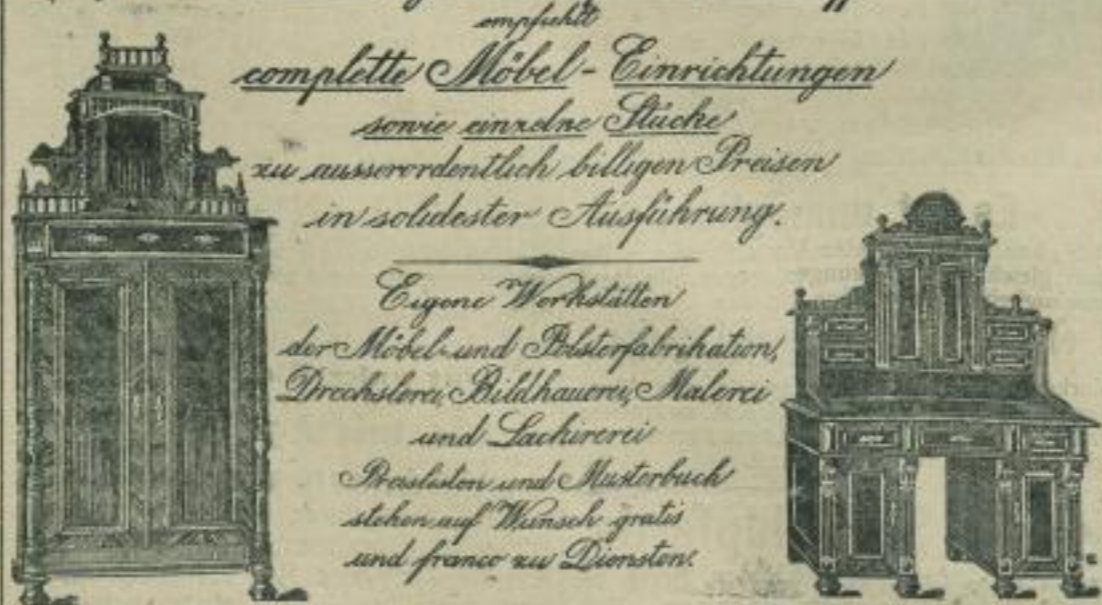 empfiehlt
complette Möbel-Einrichtungen
sowie einzelne Stücke
zu ausserordentlich billigen Preisen
in solidester Ausführung.
Eigene Werkstätten
der Möbel- und Polsterfabrikation,
Drechslerei, Bildhauerei, Malerei
und Lackirerei
Preislisten und Musterbuch
stehen auf Wunsch gratis
und franco zu Diensten.